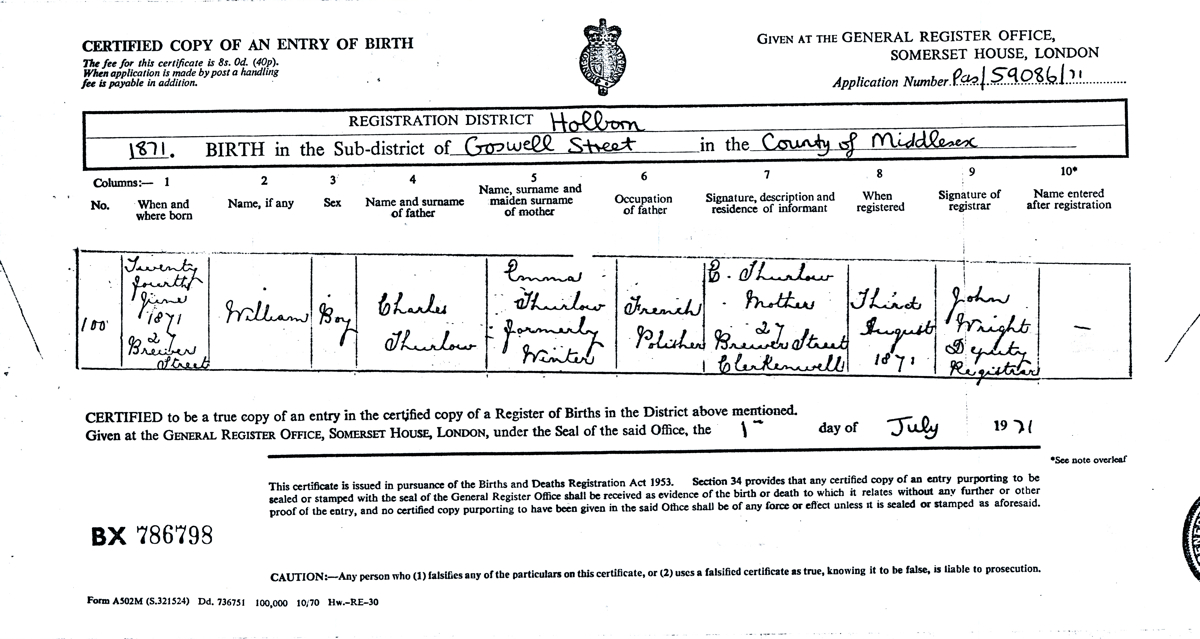 CERTIFIED COPY OF AN ENTRY OF BIRTH
The fee for this certificate is 8s. 0d. (40p).
When application is made by post a handling
fee is payable in addition.
GIVEN AT THE GENERAL REGISTER OFFICE,
SOMERSET HOUSE, LONDON
Application Number Pas/59086/71
REGISTRATION DISTRICT Holborn
1871. BIRTH in the Sub-district of Goswell Street in the County of Middlesex
Columns:— 1 2 3 4 5 6 7 8 9 10*
No.
When and
where born
Name, if any
Sex
Name and surname
of father
Name, surname and
maiden surname
of mother
Occupation
of father
Signature, description and
residence of informant
When
registered
Signature of
registrar
Name entered
after registration
100
Twenty
fourth
June
1871
27
Brewer
Street
William
Boy
Charles
Thurlow
Emma
Thurlow
formerly
Winter
French
Polisher
E. Thurlow
Mother
27
Brewer Street
Clerkenwell
Third
August
1871
John
Wright
Deputy
Registrar
—
CERTIFIED to be a true copy of an entry in the certified copy of a Register of Births in the District above mentioned.
Given at the GENERAL REGISTER OFFICE, SOMERSET HOUSE, LONDON, under the Seal of the said Office, the 1st day of July 1971
*See note overleaf
This certificate is issued in pursuance of the Births and Deaths Registration Act 1953. Section 34 provides that any certified copy of an entry purporting to be
sealed or stamped with the seal of the General Register Office shall be received as evidence of the birth or death to which it relates without any further or other
proof of the entry, and no certified copy purporting to have been given in the said Office shall be of any force or effect unless it is sealed or stamped as aforesaid.
BX 786798
CAUTION:—Any person who (1) falsifies any of the particulars on this certificate, or (2) uses a falsified certificate as true, knowing it to be false, is liable to prosecution.
Form A502M (S.321524) Dd. 736751 100,000 10/70 Hw.-RE-30